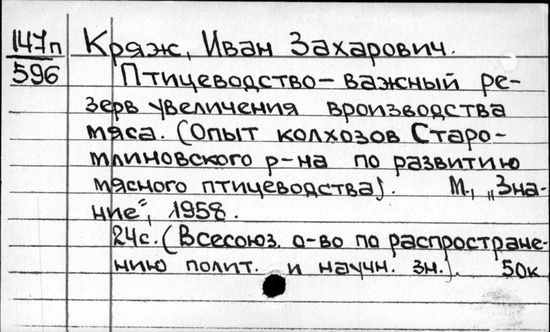 147п Кряж, Иван Захарович.
596 Птицеводство – важный ре-
зерв увеличения вроизводства
мяса. (Опыт колхозов Старо-
млиновского р-на по развитию
мясного птицеводства). М., „Зна-
ние“, 1958.
24с. (Всесоюз. о-во по распростране-
нию полит. и научн. зн.). 50к